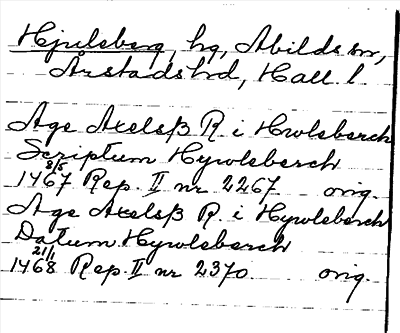 Hjulsberg, hg, Abilds sn,
Årstads hd, Hall. l.
Age Axelsß R i Hwlsberch
Scriptum Hywlsberch
1467 8/5 Rep. II nr 2267 orig.
Age Axelsß R. i Hywlsberch
Datum Hywlsberch
1468 21/1 Rep. II nr 2370. orig.